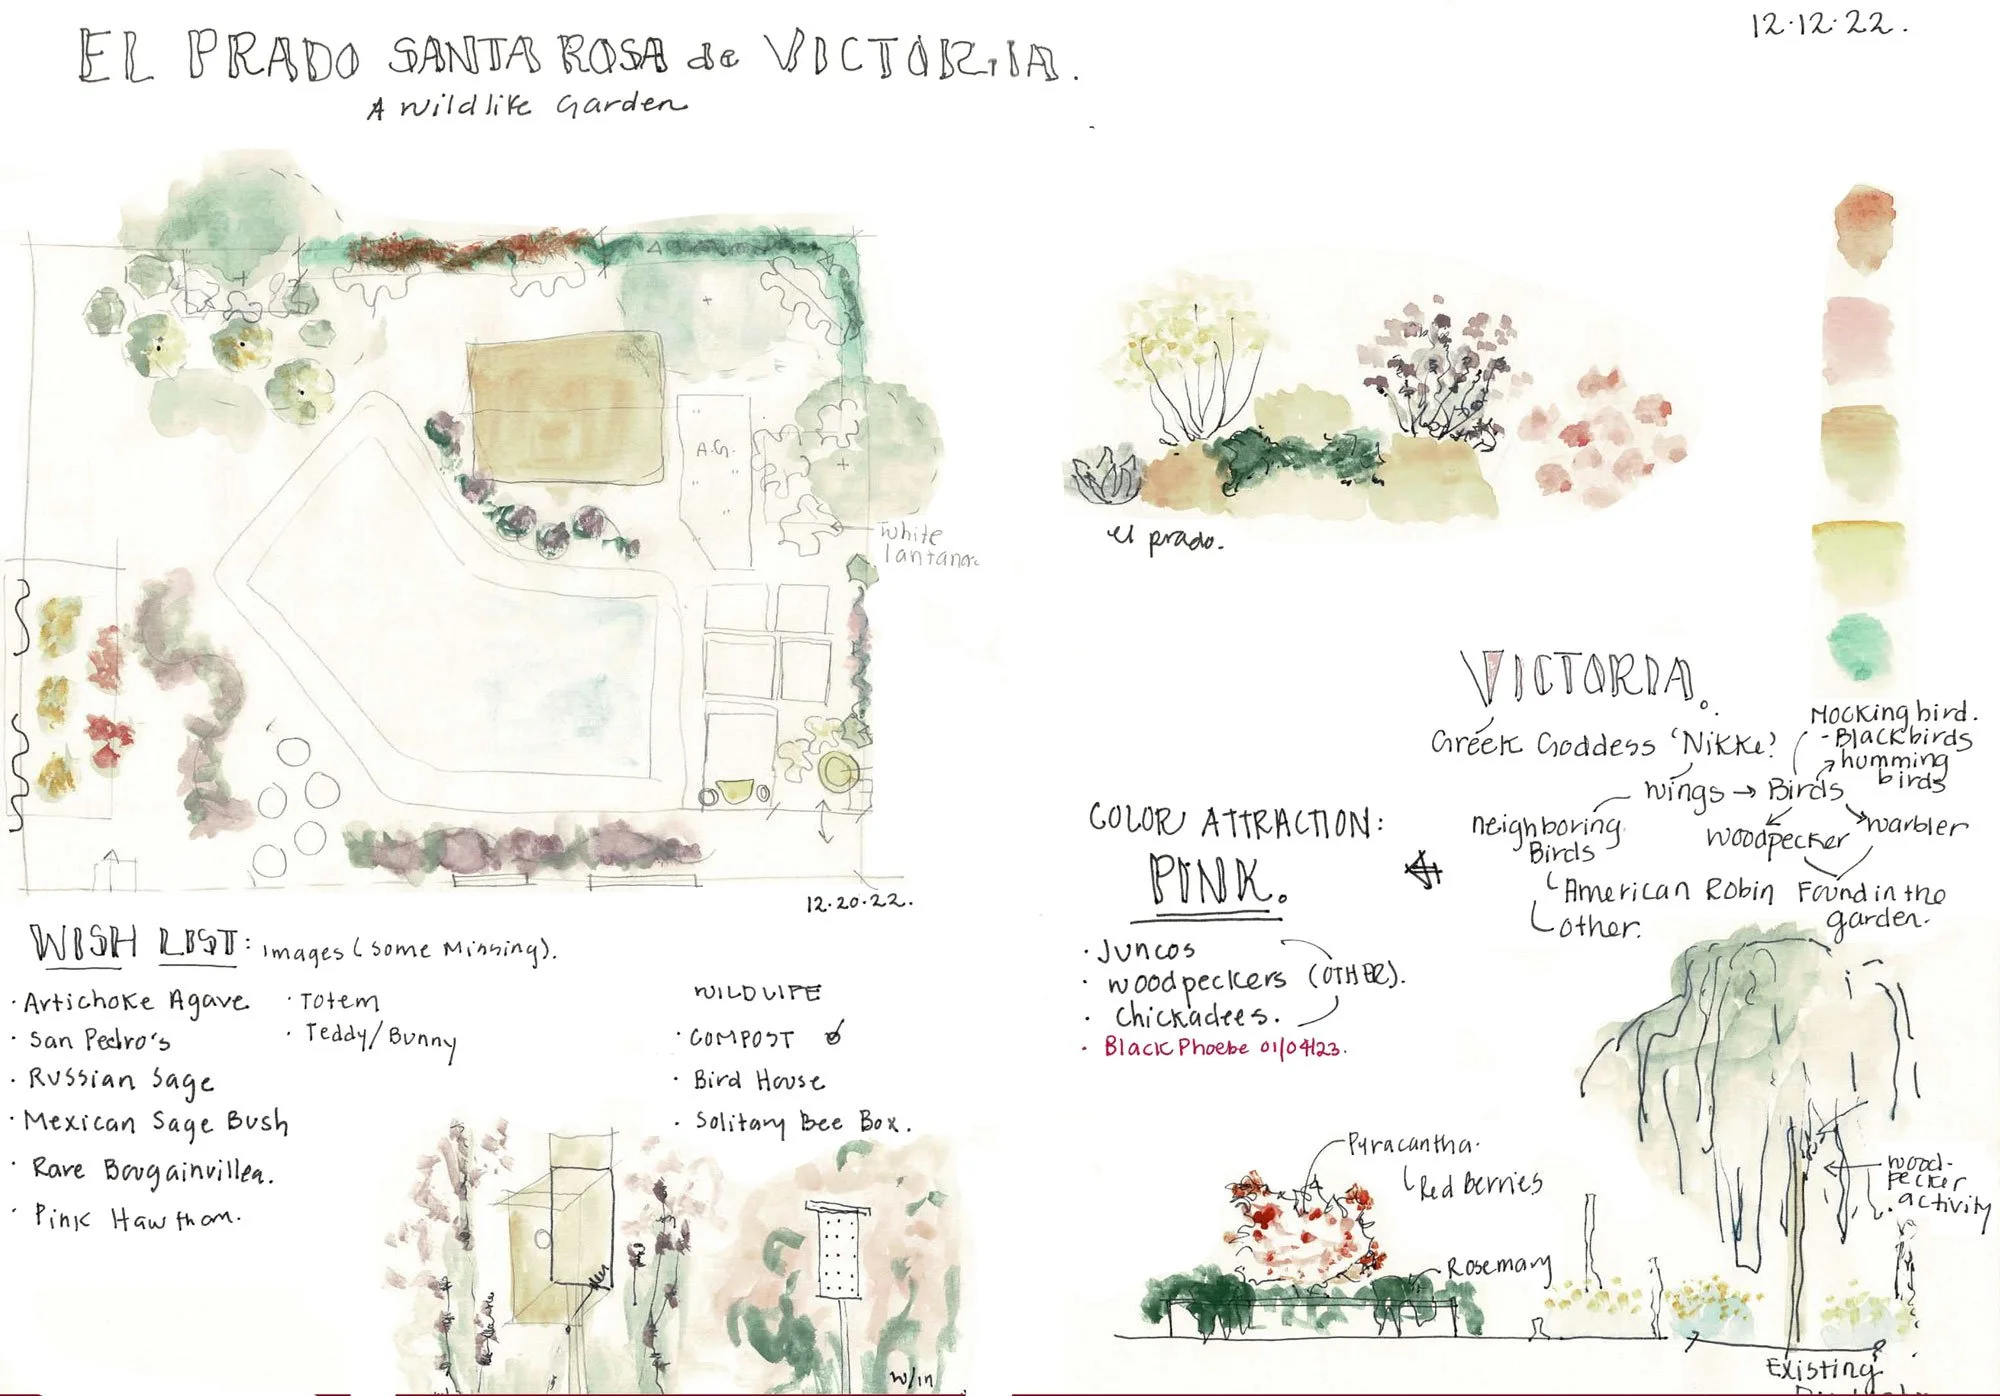 EL PRADO SANTA ROSA de VICTORIA.
A Wildlife Garden
12·12·22.
A.G.
white
lantana
12·20·22.
el prado.
VICTORIA.
Greek Goddess 'Nikke'
wings → Birds
Mockingbird.
- Blackbirds
humming
birds
neighboring
Birds
woodpecker
warbler
American Robin
other.
Found in the
garden.
COLOR ATTRACTION:
PINK.
· Juncos
· woodpeckers (OTHER).
· Chickadees.
· Black Phoebe 01/04/23.
WISH LIST: Images (some Missing).
· Artichoke Agave
· San Pedro's
· Russian Sage
· Mexican Sage Bush
· Rare Bougainvillea.
· Pink Hawthorn.
· Totem
· Teddy/Bunny
WILDLIFE
· COMPOST
· Bird House
· Solitary Bee Box.
w/in
Pyracantha.
Red Berries
Rosemary
wood-
pecker
activity
Existing